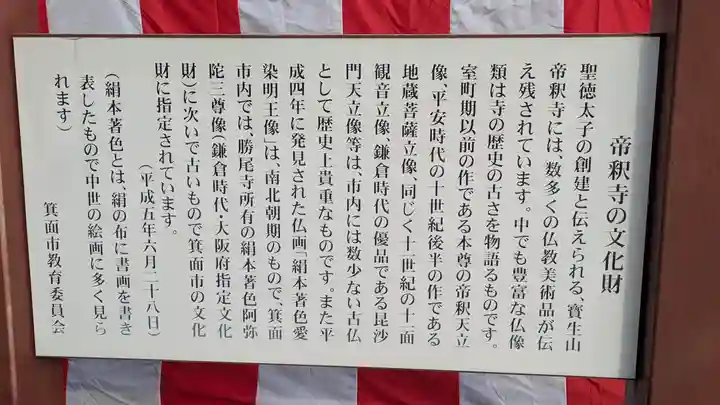 帝釈寺の文化財
聖徳太子の創建と伝えられる、寳生山
帝釈寺には、数多くの仏教美術品が伝
え残されています。中でも豊富な仏像
類は寺の歴史の古さを物語るものです。
室町期以前の作である本尊の帝釈天立
像、平安時代の十世紀後半の作である
地蔵菩薩立像、同じく十二世紀の十一面
観音立像、鎌倉時代の優品である毘沙
門天立像等は、市内には数少ない古仏
として歴史上貴重なものです。また平
成四年に発見された仏画「絹本著色愛
染明王像」は、南北朝期のもので、箕面
市内では、勝尾寺所有の絹本著色阿弥
陀三尊像(鎌倉時代・大阪府指定文化
財)に次いで古いもので箕面市の文化
財に指定されています。
(平成五年六月二十八日)
(絹本著色とは、絹の布に書画を書き
表したもので中世の絵画に多く見ら
れます)
箕面市教育委員会